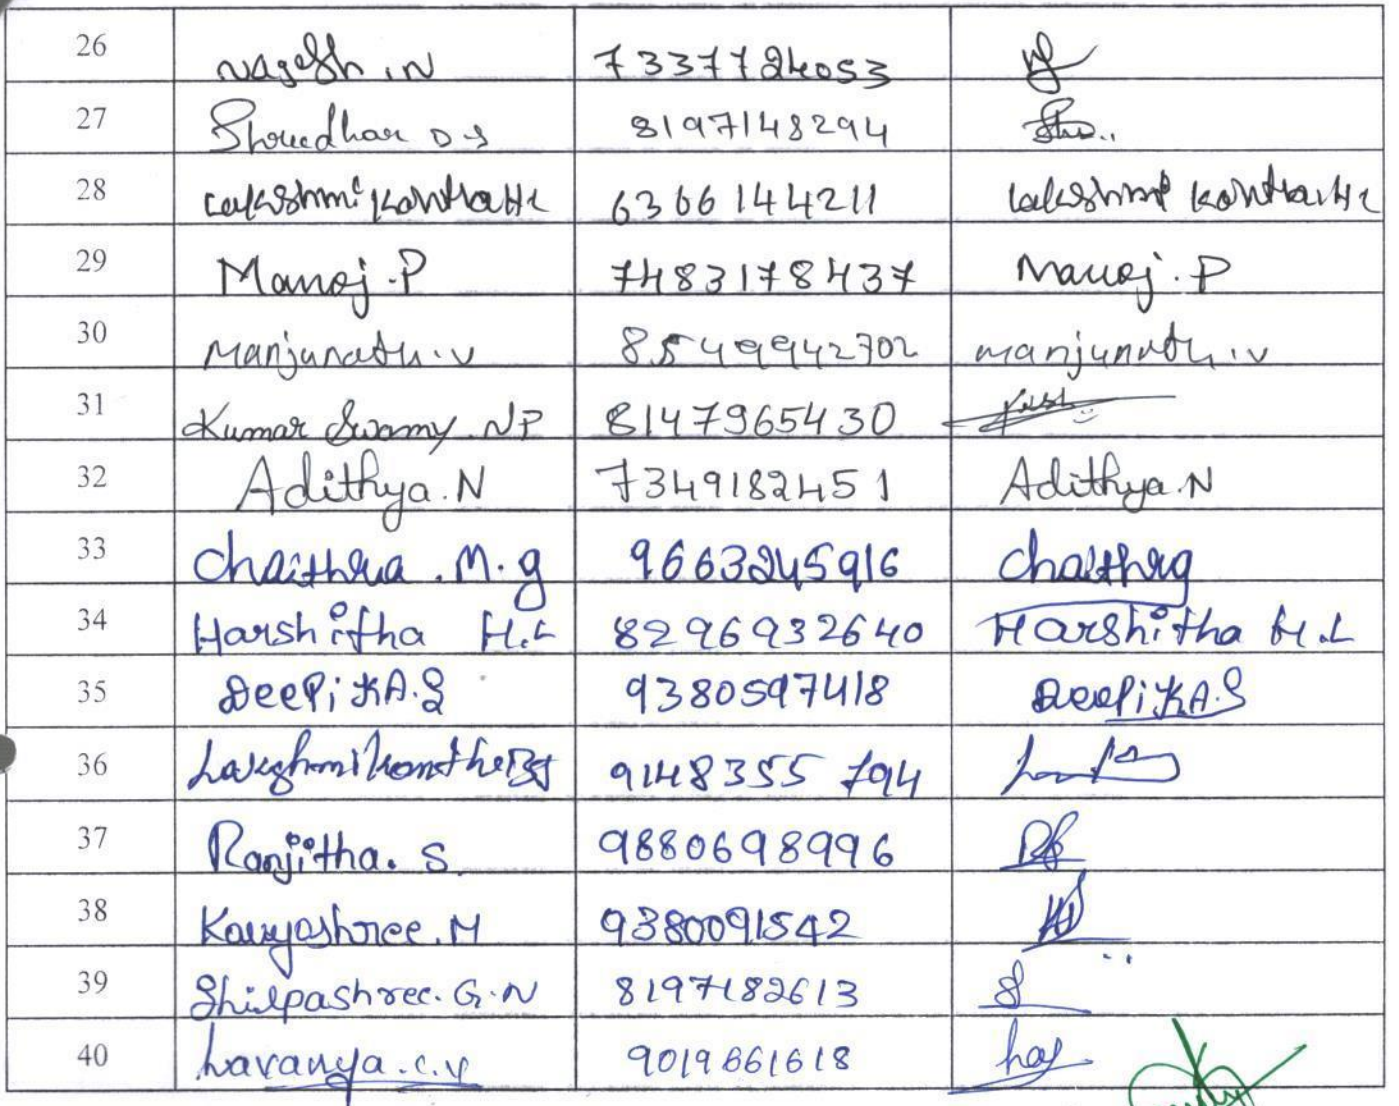 26 Nagesh .N 7337724053
27 Shreedhar D S 8197148294
28 Lakshmikantha H L 6366144211 Lakshmikantha H L
29 Manoj .P 7483178437 Manoj .P
30 Manjunath .V 8549942702 manjunath .v
31 Kumar Swamy NP 8147965430
32 Adithya.N 7349182451 Adithya.N
33 Chaithra .M.g 9663245916 Chaithra
34 Harshitha H.L 8296932640 Harshitha H.L
35 DeePiKA.S 9380597418 DeePiKA.S
36 9148355794
37 Ranjitha. S. 9880698996
38 Kavyashree.M 9380091542
39 Shilpashree.G.N 8197182613
40 Lavanya.c.v 9019661618